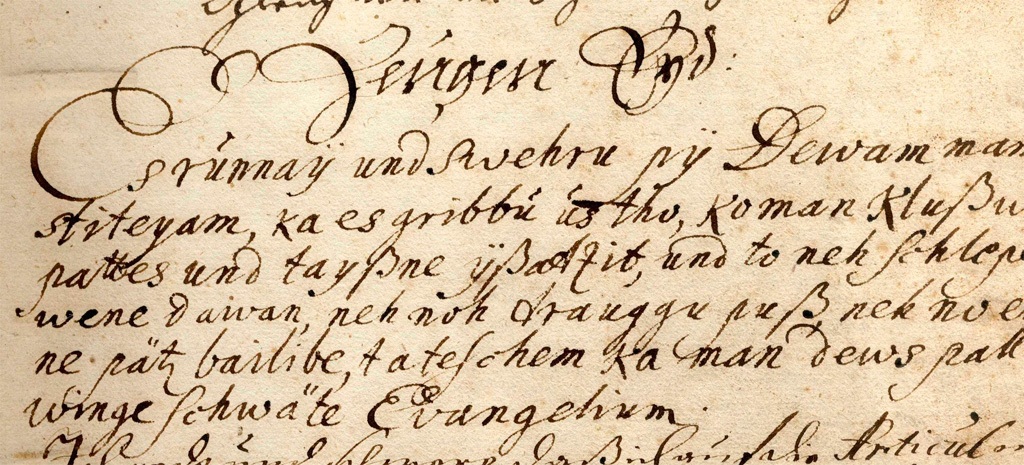 Zeugen Eyd:
Es runnaÿ und swehru pÿ Dewam man
stiteyam, ka es gribbu us tho, ko man Klußu
pattes und tayßne ÿßatzit, und to neh schlep
wene dawan, neh noh drauggu puß, neh no e
ne pätz bailibe, tateschem ka man dews pall
winge schwäte Evangelium.
und schwere daß ich auf die Articul